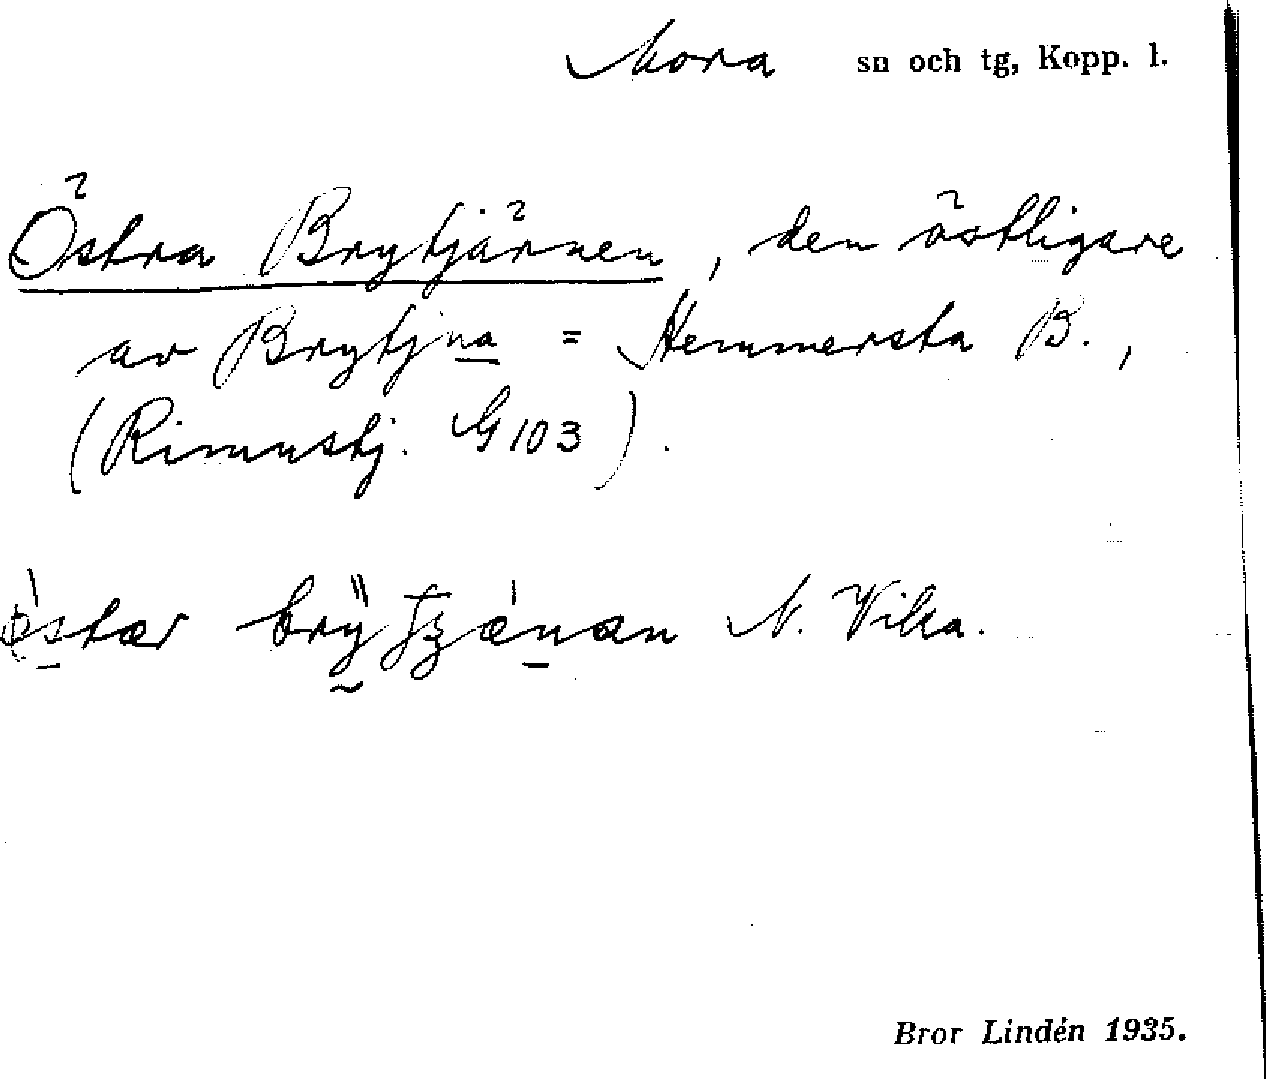 Mora sn och tg, Kopp. l.
Östra Brytjärnen, den östligare
av Brytjna = Hemmersta B.,
(Rimustj. G 103).
N. Vika.
Bror Lindén 1935.